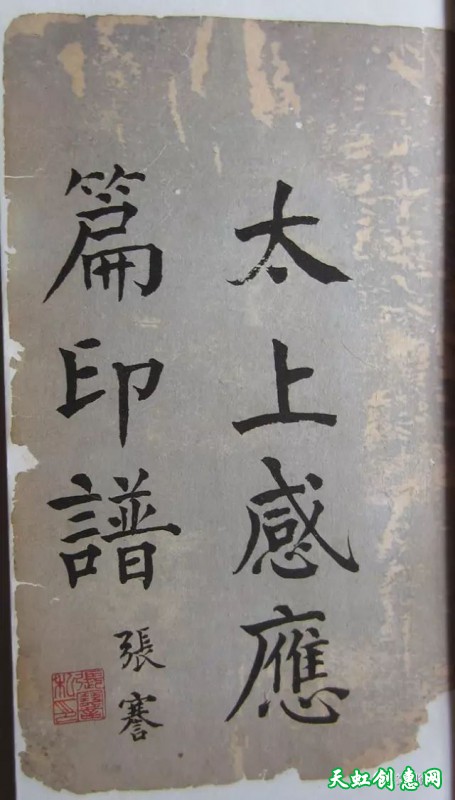 太上感應
篇印譜
張謇
天虹创惠网